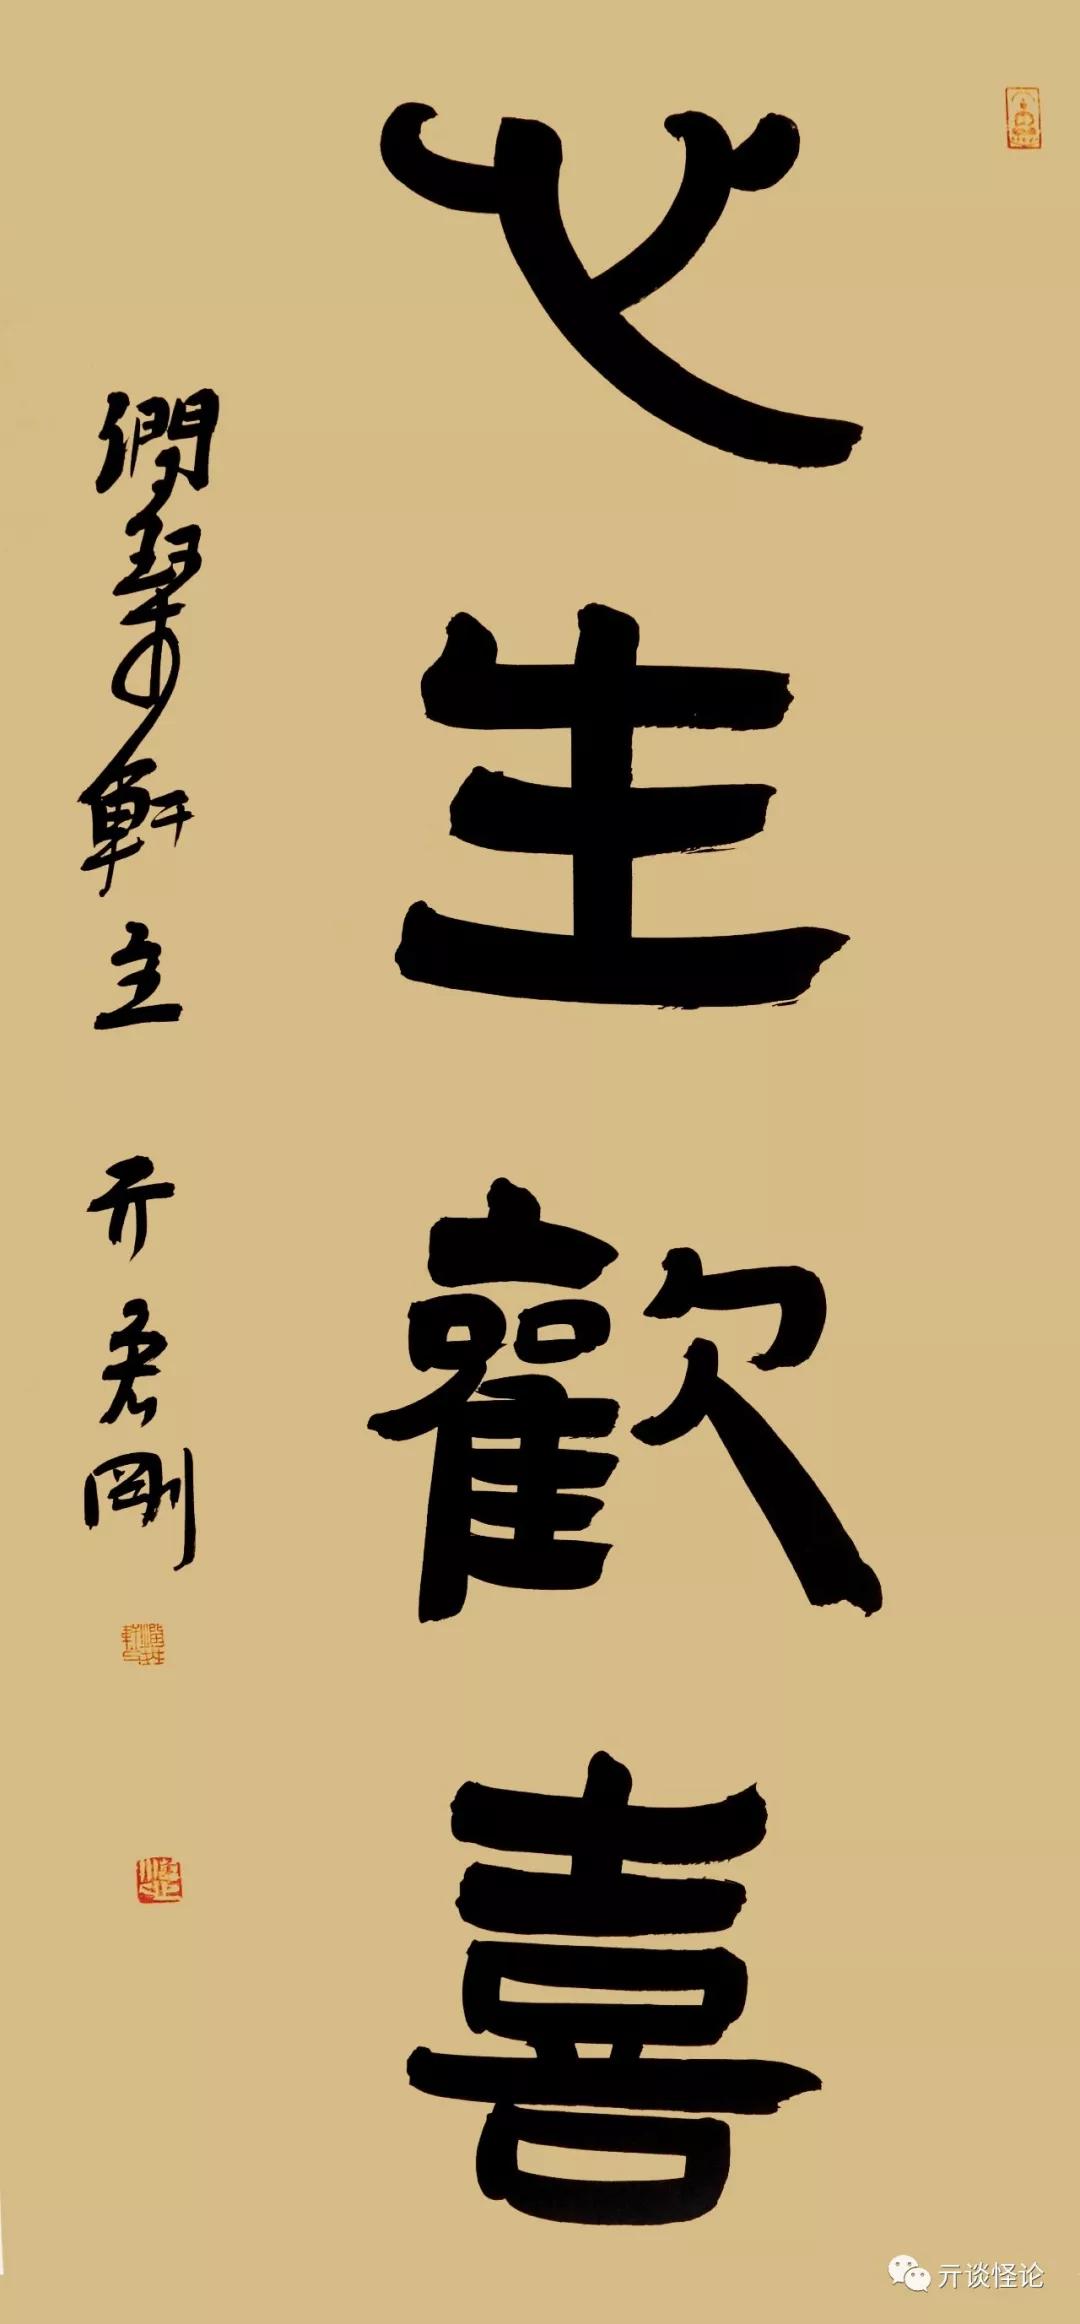 心生歡喜
澗琴軒主 亓君剛
亓谈怪论